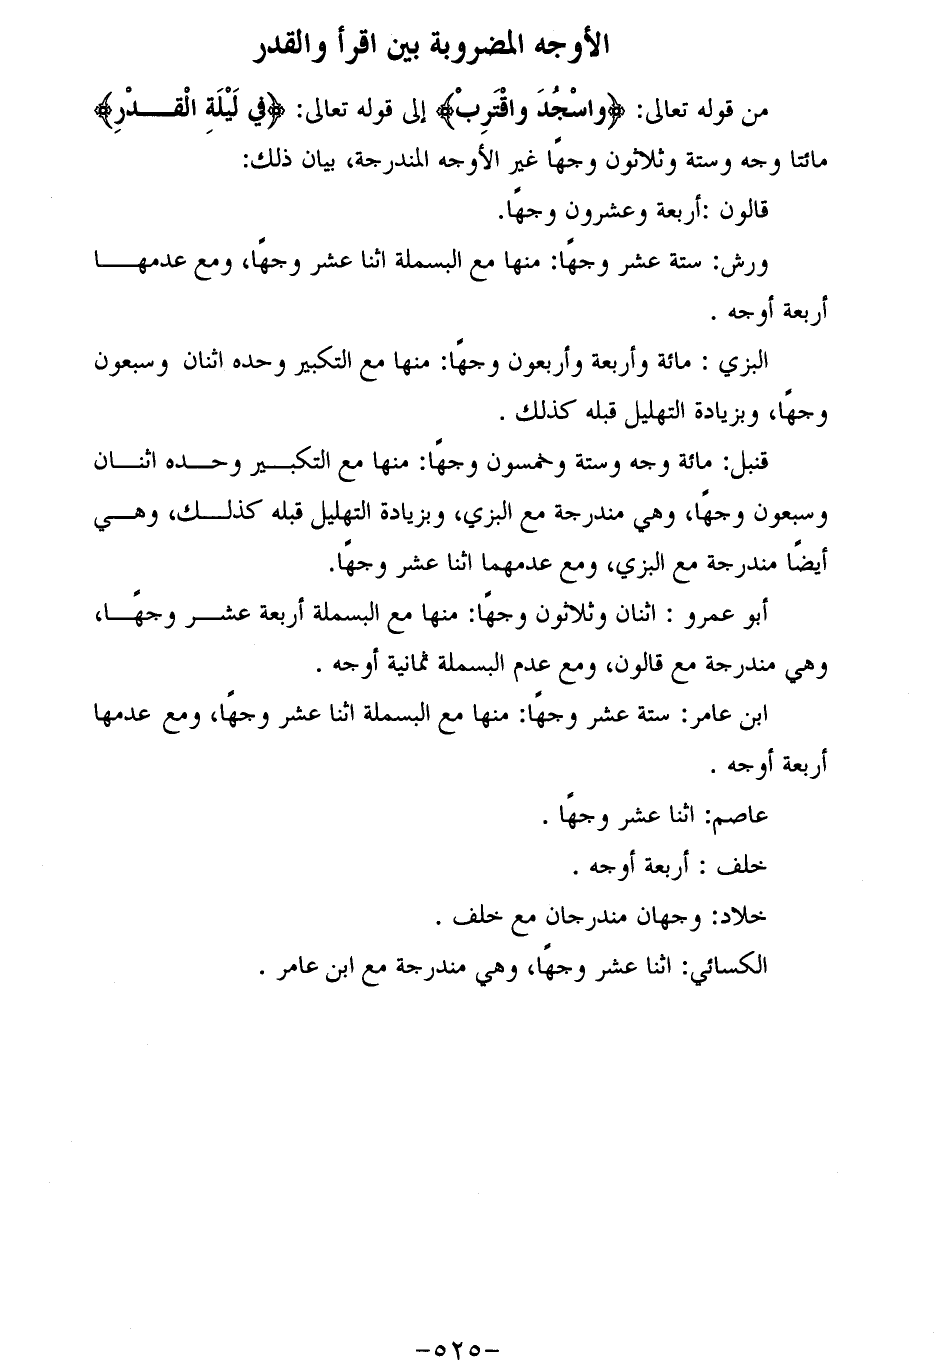 الأوجه المضروبة بين اقرأ والقدر
من قوله تعالى: ﴿واسْجُدَ واقْتَرِبْ﴾ إلى قوله تعالى: ﴿فِي لَيْلَةِ الْقـــدْرِ﴾
مائتا وجه وستة وثلاثون وجهًا غير الأوجه المندرجة، بيان ذلك:
قالون :أربعة وعشرون وجهًا.
ورش: ستة عشر وجهًا: منها مع البسملة اثنا عشر وجهًا، ومع عدمهـــا
أربعة أوجه .
البزي : مائة وأربعة وأربعون وجهًا: منها مع التكبير وحده اثنان وسبعون
وجهًا، وبزيادة التهليل قبله كذلك .
قنبل: مائة وجه وستة وخمسون وجهًا: منها مع التكبـــير وحـــده اثنـــان
وسبعون وجهًا، وهي مندرجة مع البزي، وبزيادة التهليل قبله كذلـــك، وهـــي
أيضًا مندرجة مع البزي، ومع عدمهما اثنا عشر وجهًا.
أبو عمرو : اثنان وثلاثون وجهًا: منها مع البسملة أربعة عشـــر وجهًـــا،
وهي مندرجة مع قالون، ومع عدم البسملة ثمانية أوجه .
ابن عامر: ستة عشر وجهًا: منها مع البسملة اثنا عشر وجهًا، ومع عدمها
أربعة أوجه .
عاصم: اثنا عشر وجهًا .
خلف : أربعة أوجه .
خلاد: وجهان مندرجان مع خلف .
الكسائي: اثنا عشر وجهًا، وهي مندرجة مع ابن عامر .
-٥٢٥-